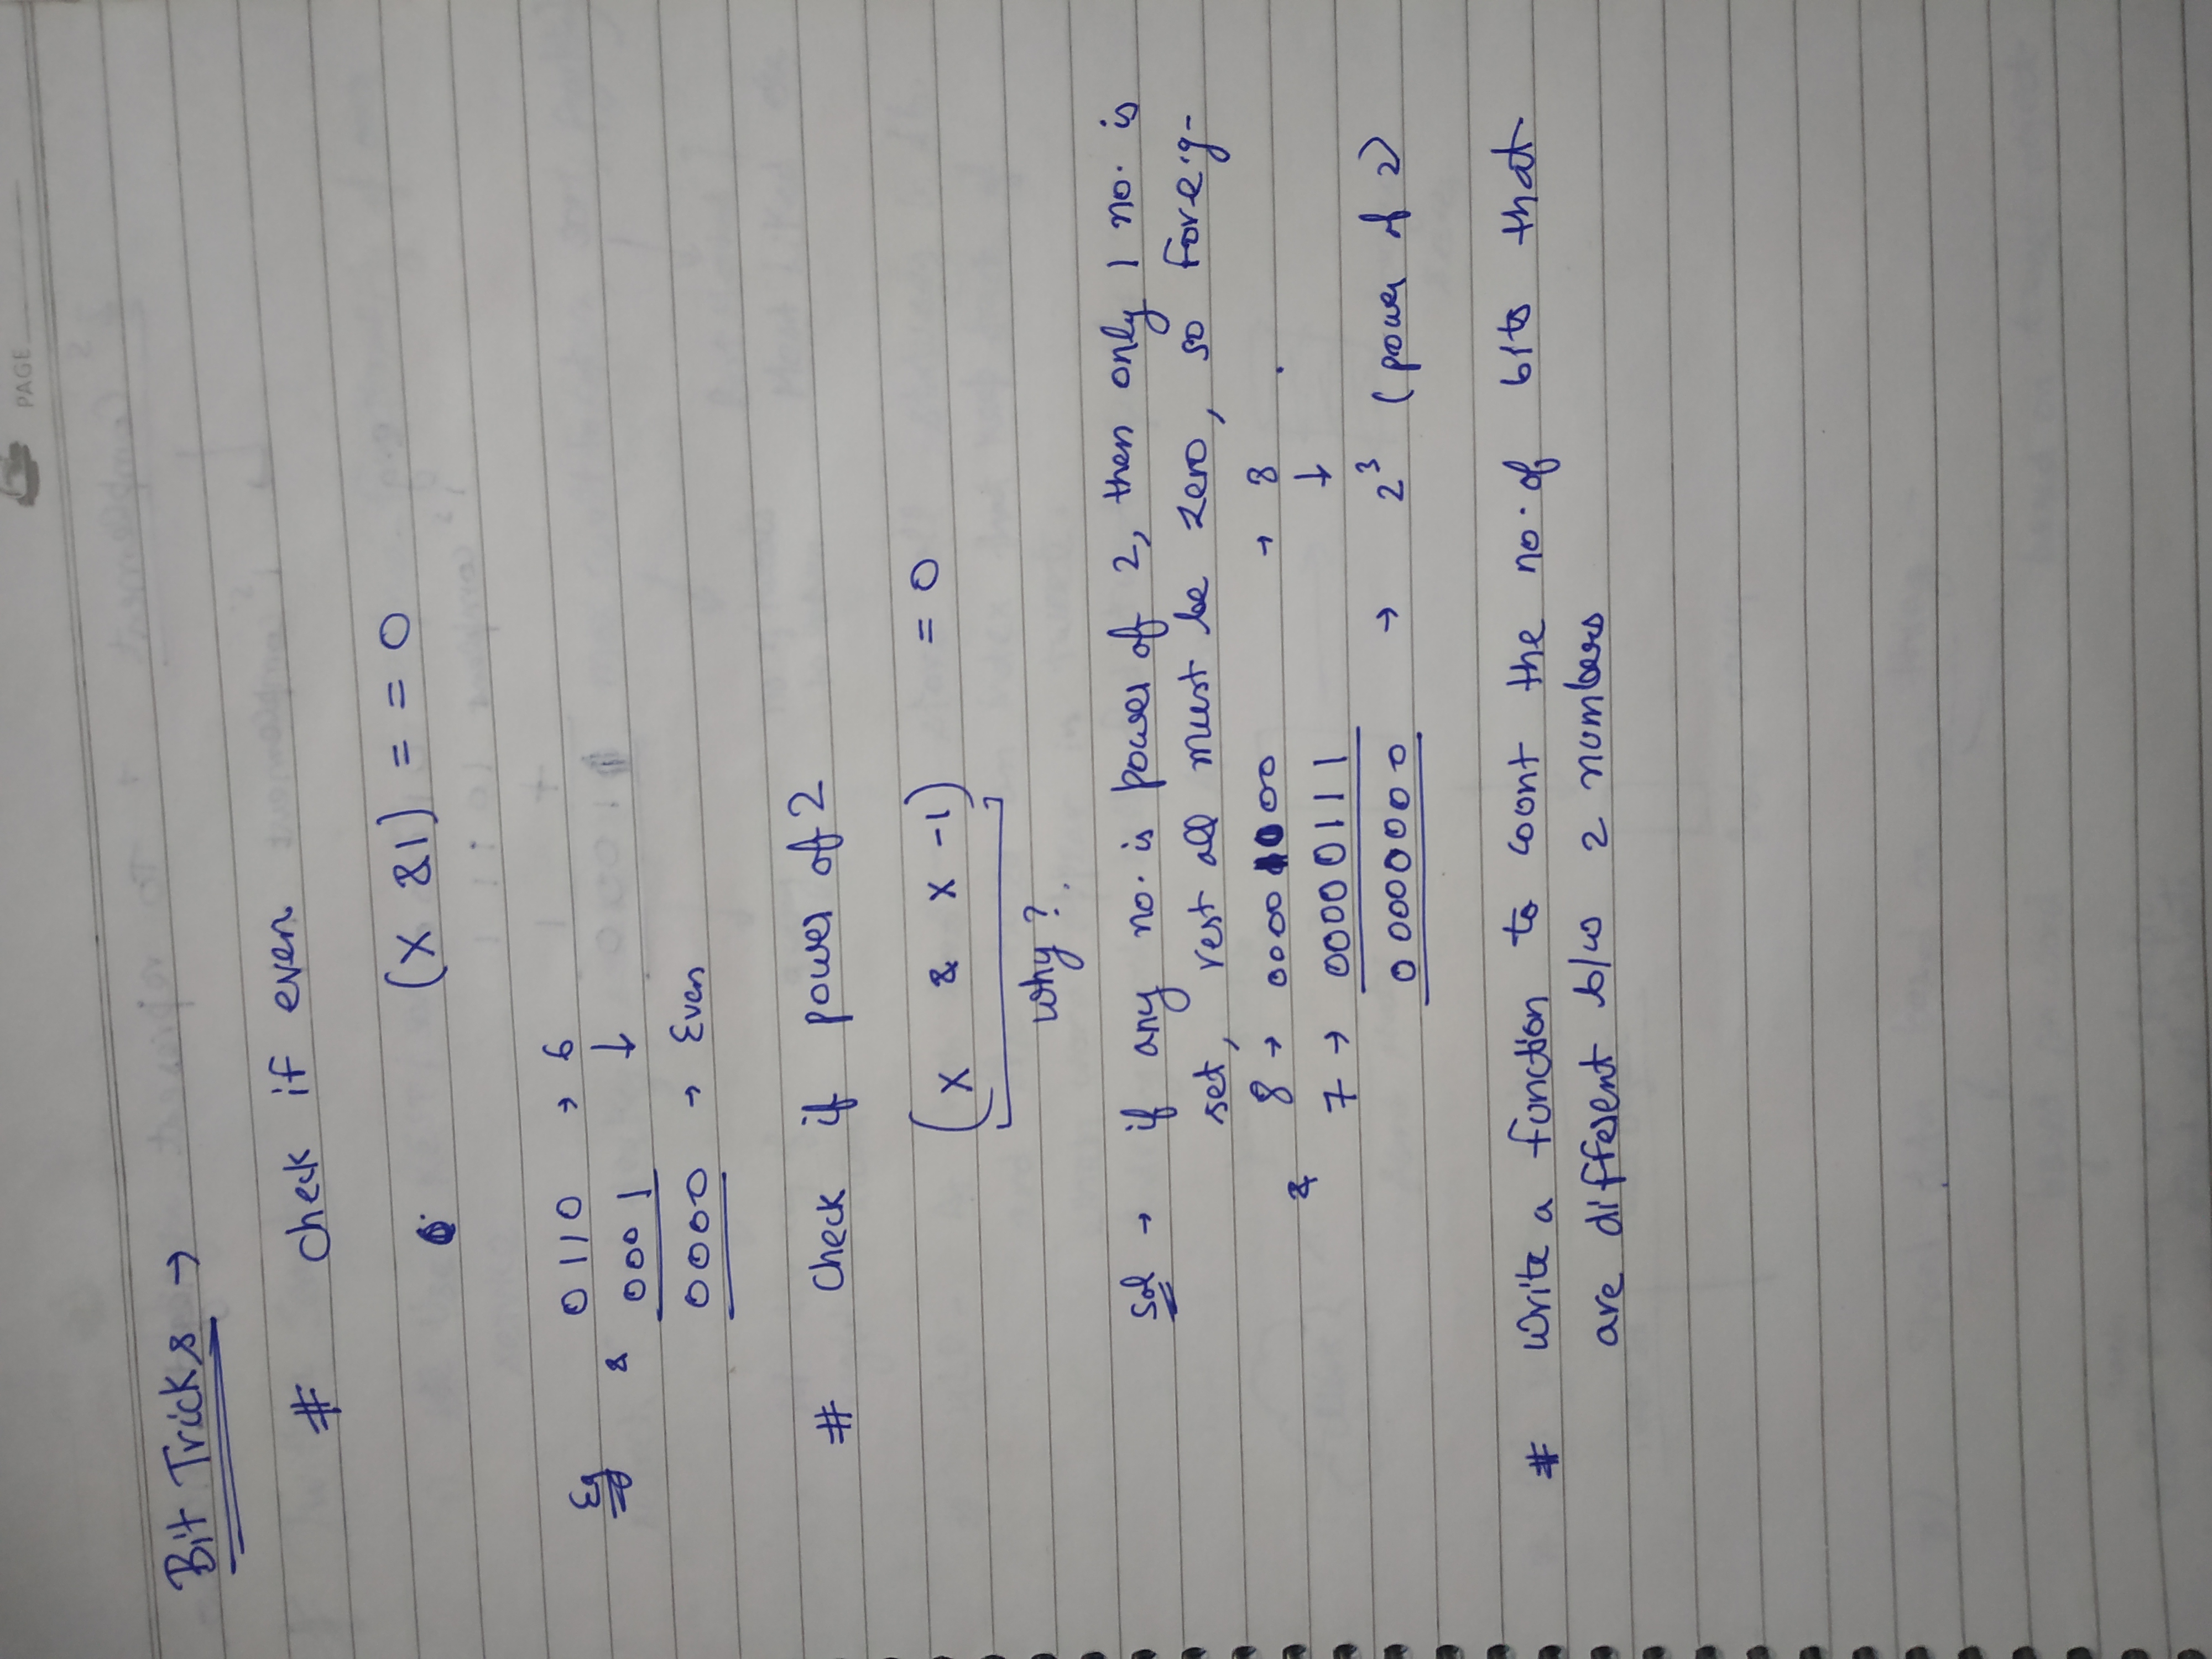 PAGE
Bit Tricks →
# check if even
(x & 1) == 0
Eg 0110 → 6
& 0001 ↓
0000 → Even
# check if power of 2
(x & x -1) = 0
why?
Sol → if any no. is power of 2, then only 1 no. is
set, rest all must be zero, so for eg-
8 → 00001000 → 8
& 7 → 00000111 ↓
00000000 → 2³ (power of 2)
# write a function to count the no. of bits that
are different b/w 2 numbers